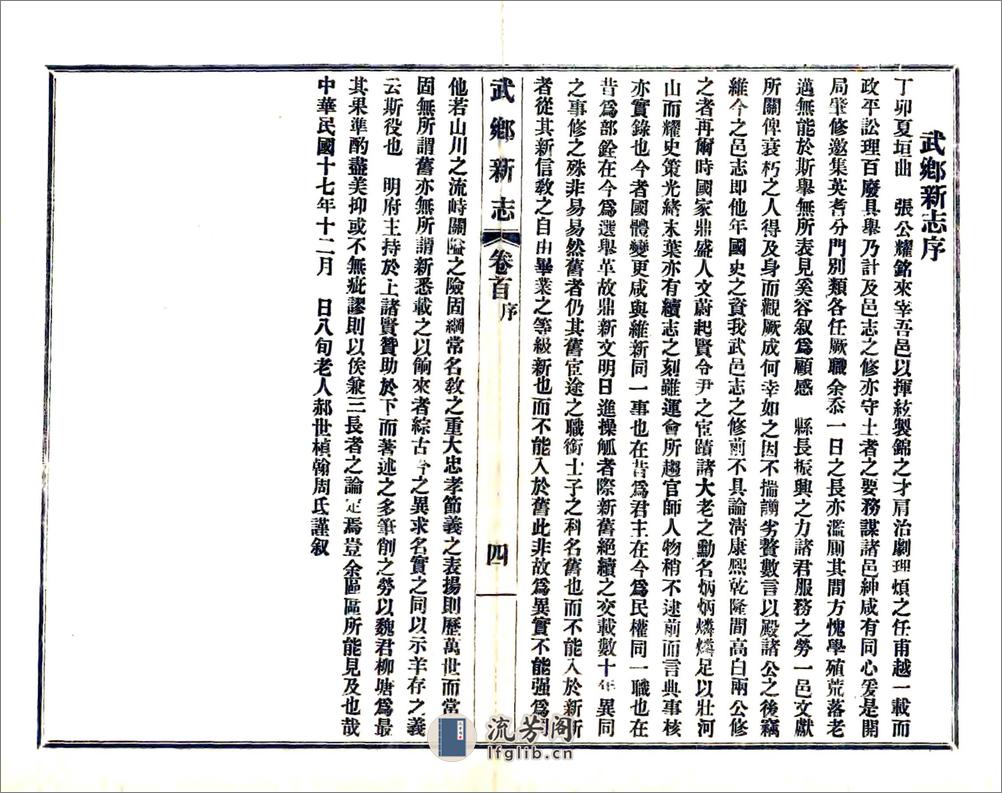 武鄉新志序
丁卯夏垣曲　張公耀銘來宰吾邑以揮絃製錦之才肩治劇理煩之任甫越一載而
政平訟理百廢具舉乃計及邑志之修亦守土者之要務謀諸邑紳咸有同心爰是開
局肇修邀集英耆分門別類各任厥職余忝一日之長亦濫厠其間方愧學殖荒落老
邁無能於斯舉無所表見奚容叙爲顧感　縣長振興之力諸君服務之勞一邑文獻
所關俾衰朽之人得及身而觀厥成何幸如之因不揣譾劣贅數言以殿諸公之後竊
維今之邑志即他年國史之資我武邑志之修前不具論淸康熙乾隆間高白兩公修
之者再爾時國家鼎盛人文蔚起賢令尹之宦蹟諸大老之勳名炳炳燐燐足以壯河
山而耀史策光緒末葉亦有續志之刻雖運會所趨官師人物稍不逮前而言典事核
亦實錄也今者國體變更咸與維新同一事也在昔爲君主在今爲民權同一職也在
昔爲部銓在今爲選舉革故鼎新文明日進操觚者際新舊絕續之交載數十年異同
之事修之殊非易易然舊者仍其舊宦途之職銜士子之科名舊也而不能入於新新
者從其新信敎之自由畢業之等級新也而不能入於舊此非故爲異實不能强爲同
武鄉新志
卷首
序
四
他若山川之流峙關隘之險固綱常名敎之重大忠孝節義之表揚則歷萬世而常
固無所謂舊亦無所謂新悉載之以餉來者綜古今之異求名實之同以示羊存之義
云斯役也　明府主持於上諸賢贊助於下而著述之多筆削之勞以魏君柳塘爲最
其果準酌盡美抑或不無疵謬則以俟兼三長者之論定焉豈余區區所能見及也哉
中華民國十七年十二月　日八旬老人郝世楨翰周氏謹叙
流芳阁
lfglib.cn